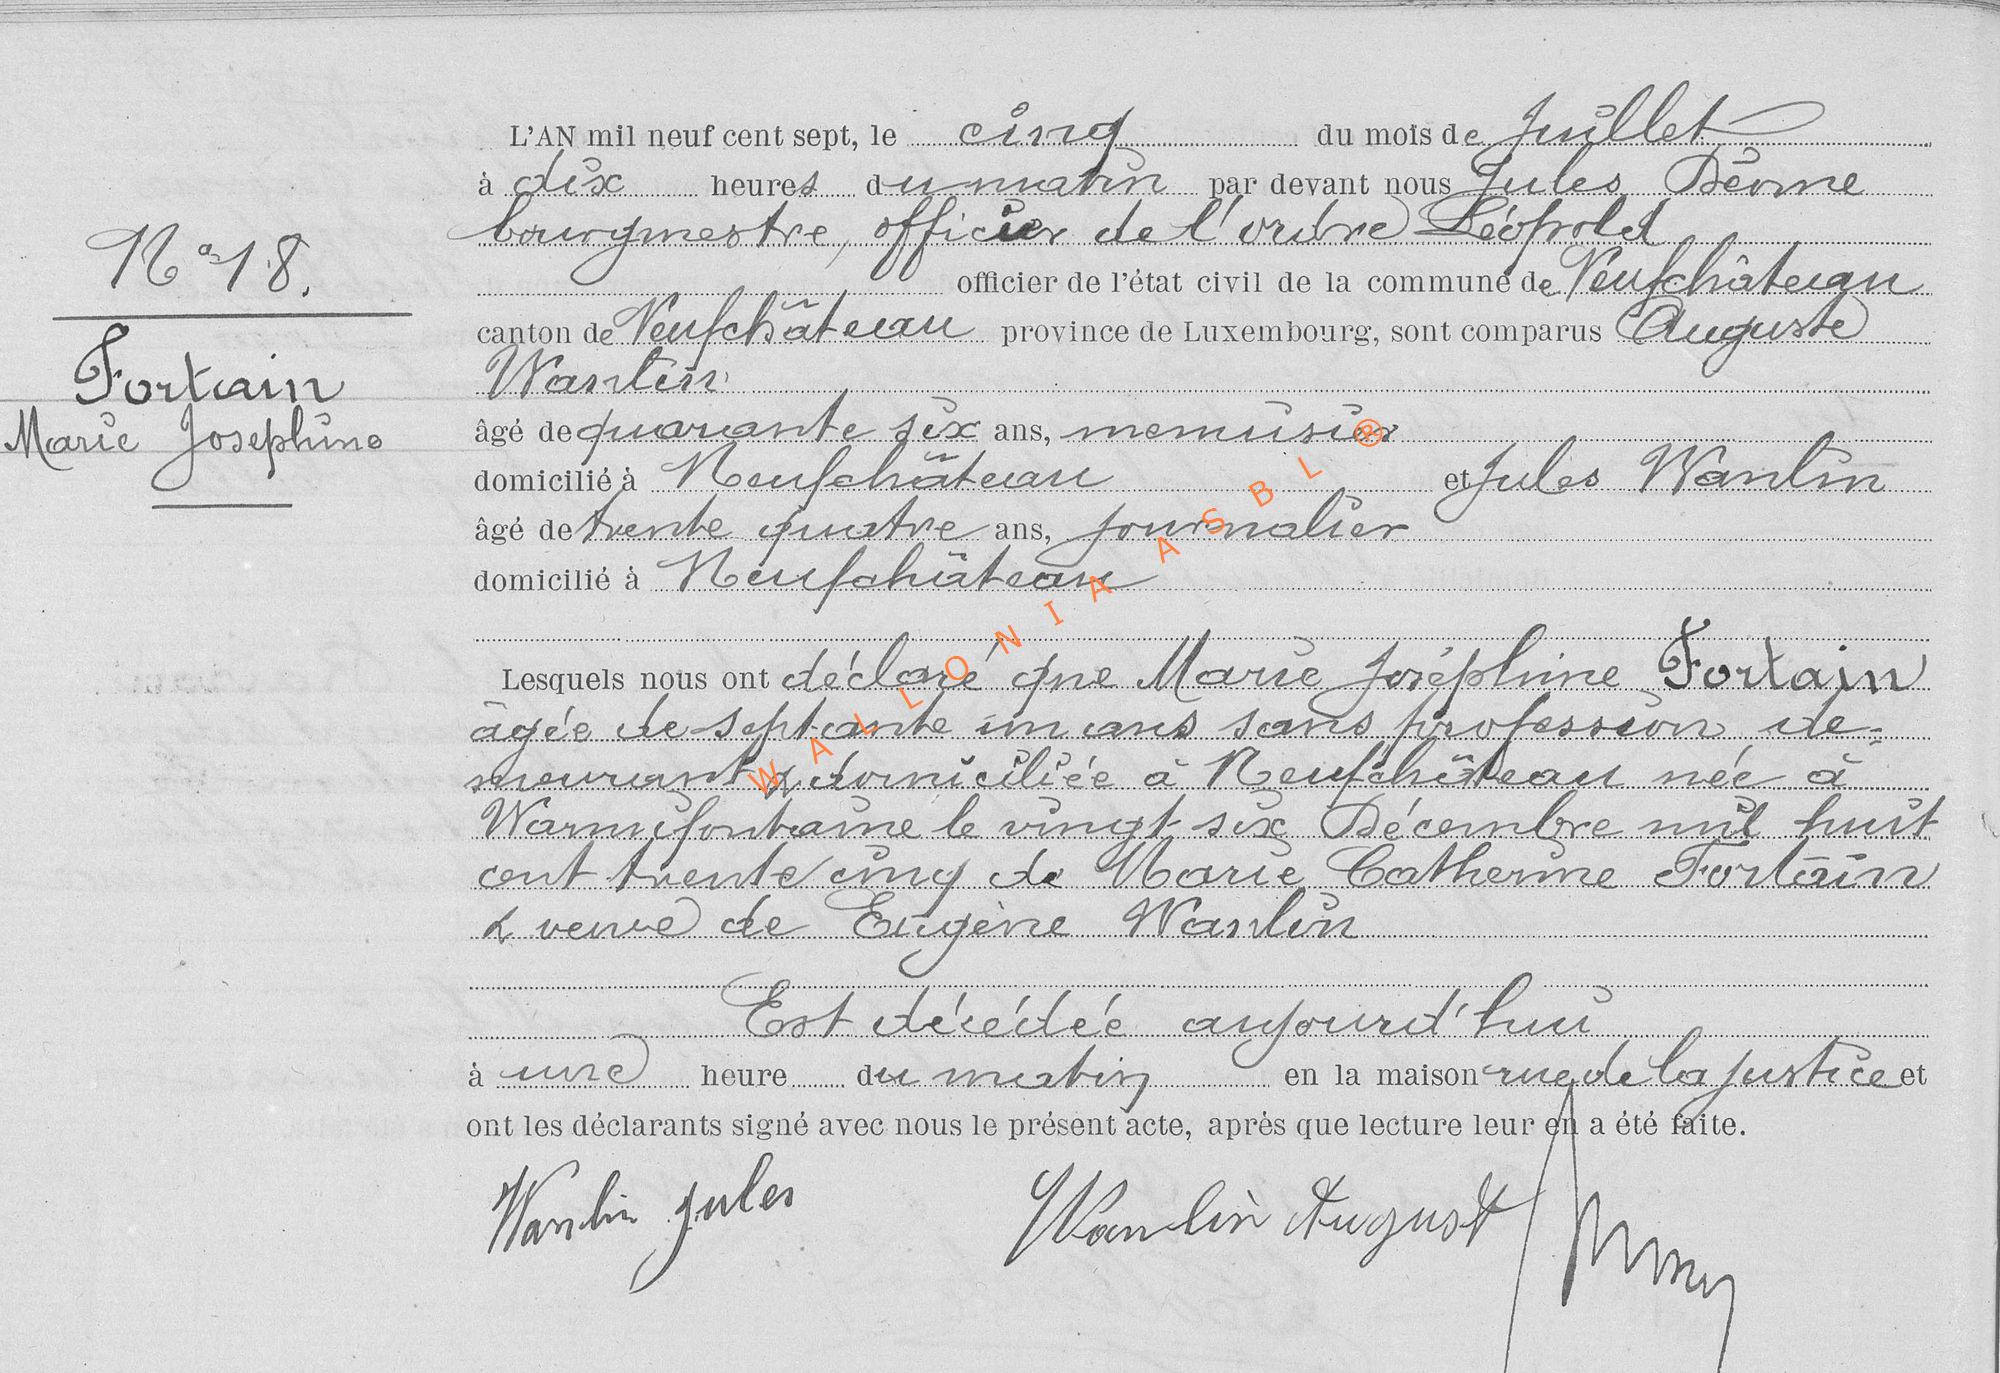 L'AN mil neuf cent sept, le cinq du mois de Juillet
à dix heures du matin par devant nous Jules
bourgmestre, officier de l'ordre Léopold
N° 18.
officier de l'état civil de la commune de Neufchâteau
canton de Neufchâteau province de Luxembourg, sont comparus Auguste
Fortain
Wanlin
Marie Josephine
âgé de quarante six ans, menuisier
domicilié à Neufchâteau et Jules Wanlin
âgé de trente quatre ans, journalier
domicilié à Neufchâteau
WALLONIA ASBL ®
Lesquels nous ont déclaré que Marie Joséphine Fortain
âgée de septante un ans sans profession de=
meurant & domiciliée à Neufchâteau née à
Warmifontaine le vingt six Décembre mil huit
cent trente cinq de Marie Catherine Fortain
& veuve de Eugène Wanlin
Est décédée aujourd'hui
à une heure du matin en la maison rue de la justice et
ont les déclarants signé avec nous le présent acte, après que lecture leur en a été faite.
Wanlin Jules Wanlin August